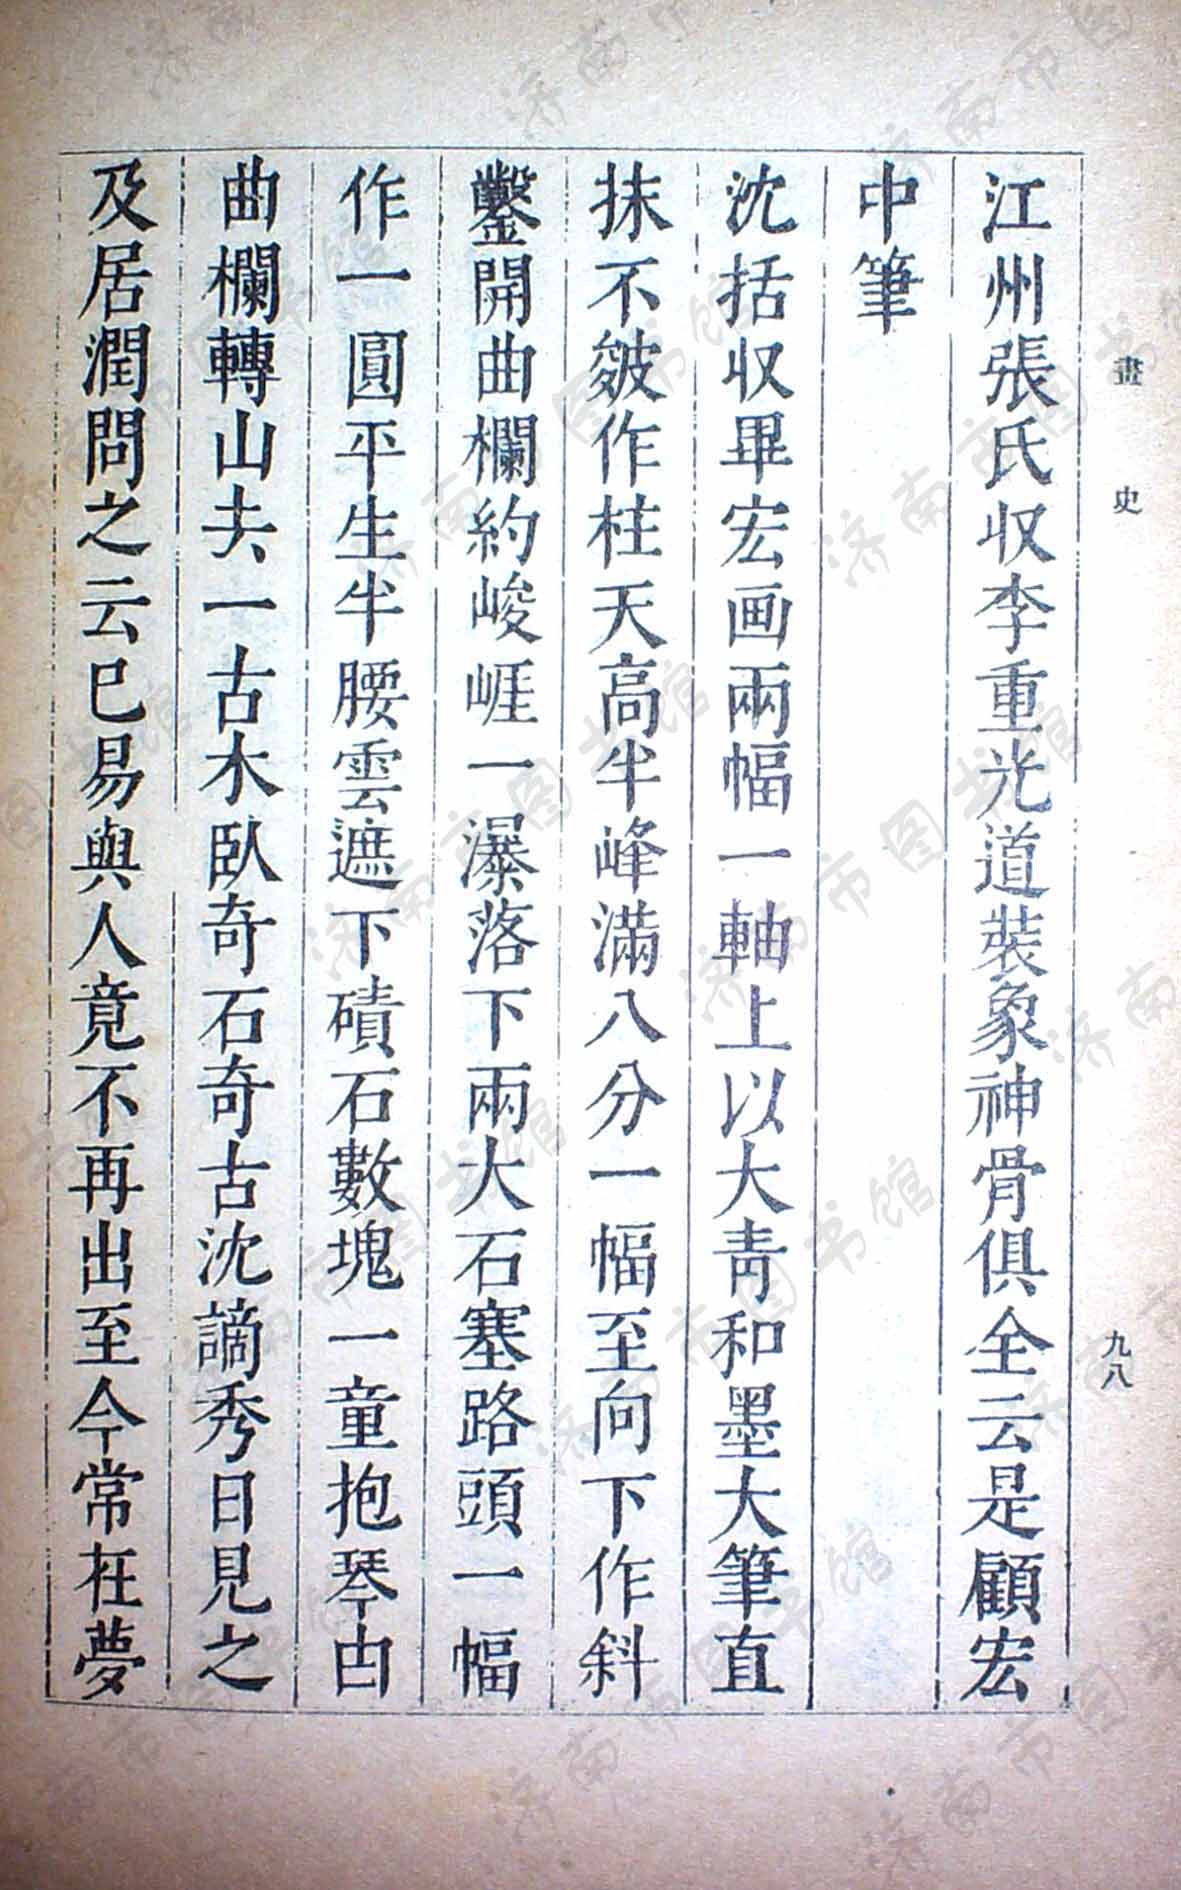 畫史 九八
江州張氏収李重光道裝象神骨俱全云是顧宏
中筆
沈括収畢宏画兩幅一軸上以大青和墨大筆直
抹不皴作柱天高半峰滿八分一幅至向下作斜
鑿開曲欄約峻崕一瀑落下兩大石塞路頭一幅
作一圓平生半腰雲遮下磧石數塊一童抱琴由
曲欄轉山去一古木臥奇石奇古沈謫秀日見之
及居潤問之云已易與人竟不再出至今常在夢
济南市图书馆